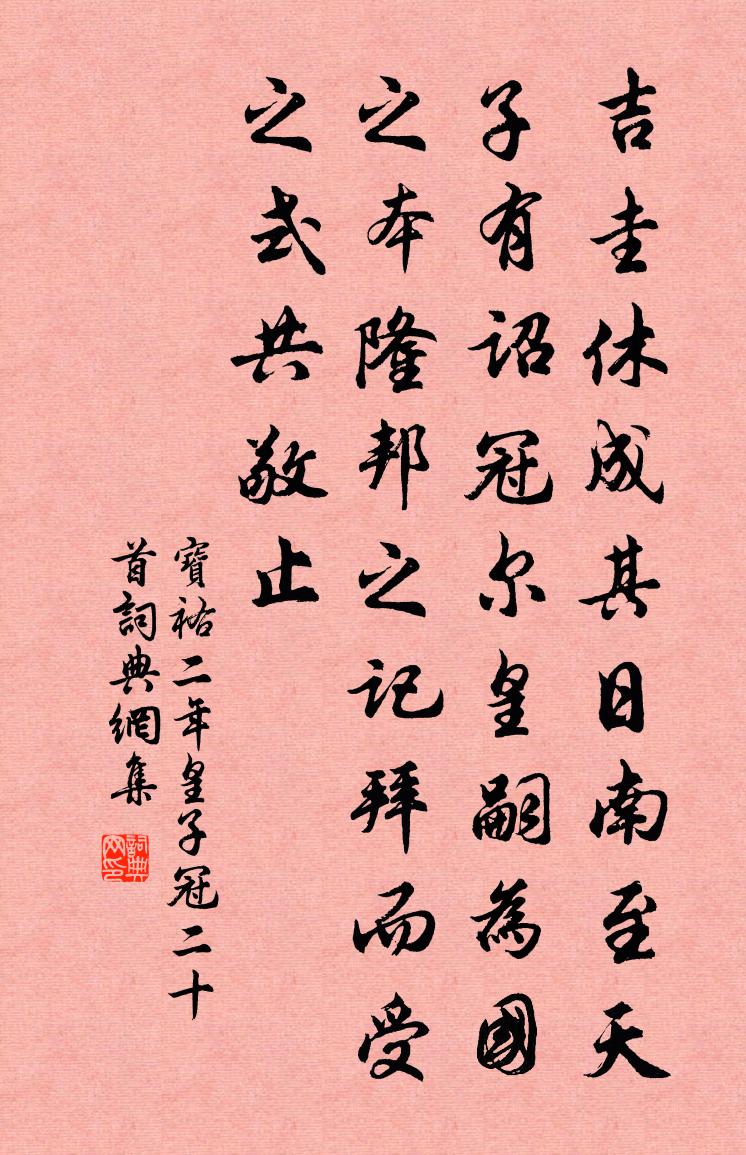 吉圭休成其日南至天
子有詔冠尔皇嗣為國
之本隆邦之记拜而受
之式共敬止
寶祐二年皇子冠二十
首詞典網集
詞典网印